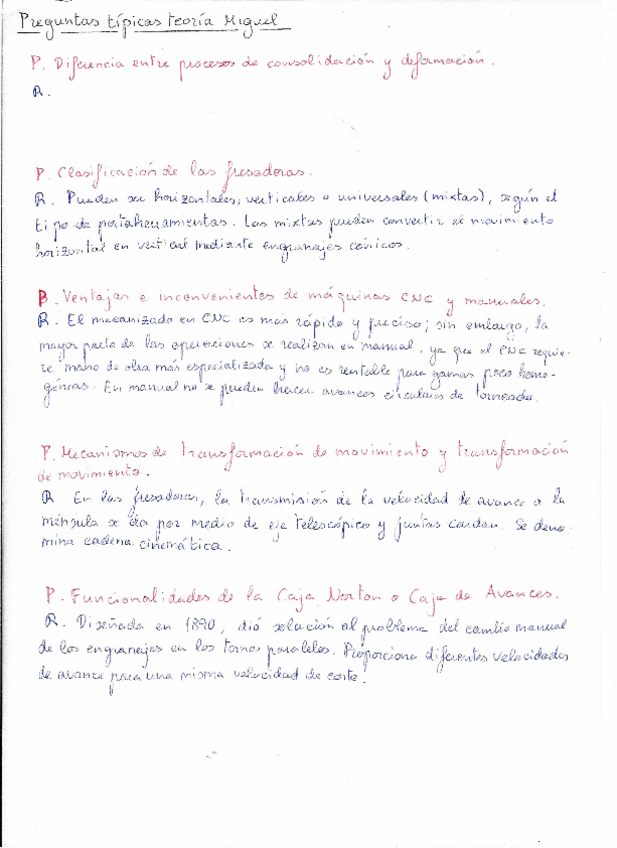 Preguntas típicas teoría Miguel
P. Diferencia entre procesos de consolidación y deformación.
R.
P. Clasificación de las fresadoras.
R. Pueden ser horizontales, verticales o universales (mixtas), según el
tipo de portaherramientas. Las mixtas pueden convertir el movimiento
horizontal en vertical mediante engranajes cónicos.
P. Ventajas e inconvenientes de máquinas CNC y manuales.
R. El mecanizado en CNC es más rápido y preciso; sin embargo, la
mayor parte de las operaciones se realizan en manual, ya que el CNC requie-
re mano de obra más especializada y no es rentable para gamas poco homo-
géneas. En manual no se pueden hacer avances circulares de torneado.
P. Mecanismos de transformación de movimiento y transformación
de movimiento.
R. En las fresadoras, la transmisión de la velocidad de avance a la
ménsula se da por medio de eje telescópico y juntas cardan. Se deno-
mina cadena cinemática.
P. Funcionalidades de la Caja Norton o Caja de Avances.
R. Diseñada en 1890, dió solución al problema del cambio manual
de los engranajes en los tornos paralelos. Proporciona diferentes velocidades
de avance para una misma velocidad de corte.